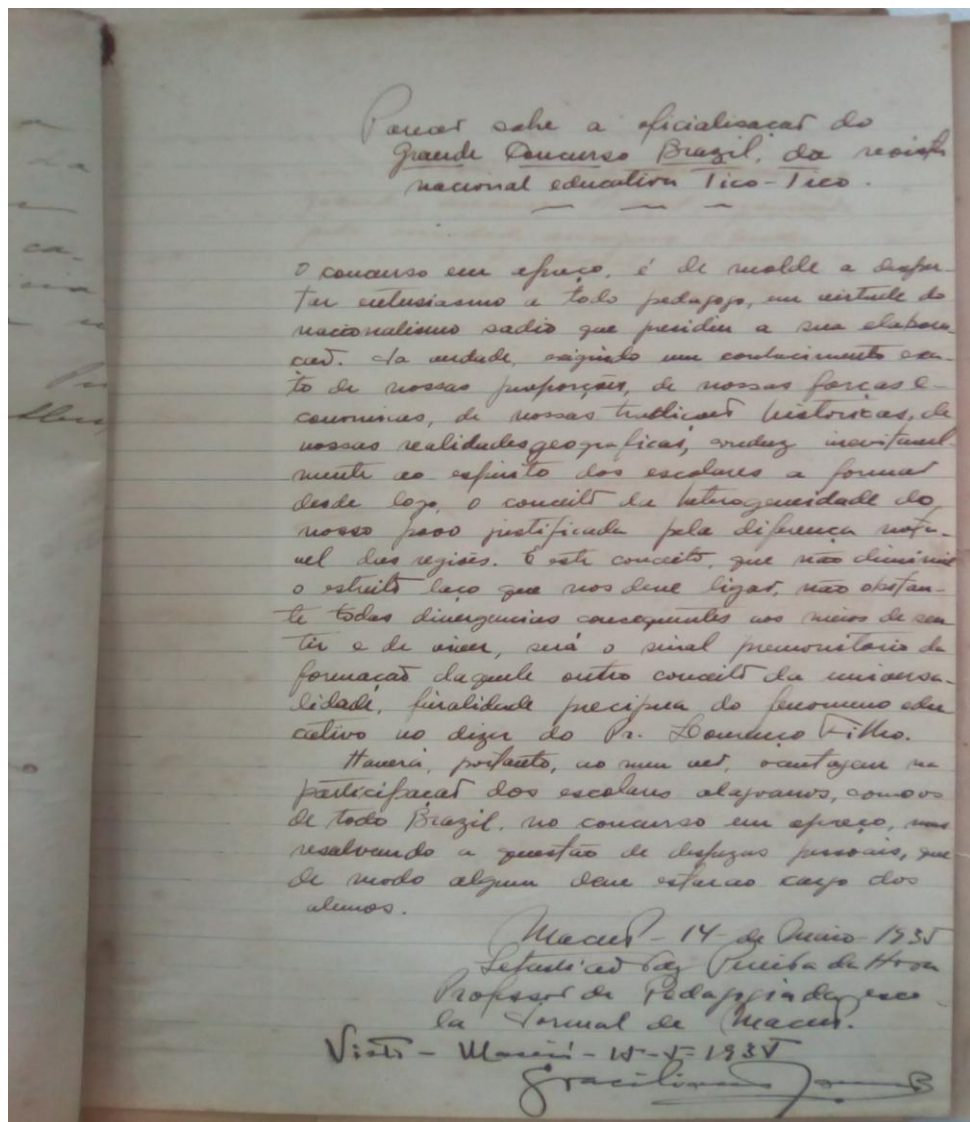 Parecer sobre a oficialisação do
Grande Concurso Brazil, da revista
nacional educativa Tico-Tico.
O concurso em apreço, é de molde a desper-
tar entusiasmo a todo pedagogo, em virtude do
nacionalismo sadio que presidiu a sua elabora-
ção. Na verdade, exigindo um conhecimento exa-
to de nossas proporções, de nossas forças e-
conomicas, de nossas tradições historicas, de
nossas realidades geograficas, conduz inevitavel
mente ao espirito dos escolares a formar
desde logo, o conceito da heterogeneidade do
nosso povo justificada pela diferença notá-
vel das regiões. E este conceito, que não diminui
o estreito laço que nos deve ligar, não obstan-
te todas divergencias consequentes aos meios de sen
tir e de viver, será o sinal premonitorio da
formação daquele outro conceito da universa-
lidade, finalidade precipua do fenomeno edu
cativo no dizer do Pr. Lourenço Filho.
Haverá, portanto, ao meu ver, vantagem na
participação dos escolares alagoanos, como os
de todo Brazil, no concurso em apreço,
resalvando a questão de despezas pessoais, que
de modo algum deve estar ao cargo dos
alunos.
Maceió - 14 de Maio - 1935
Sebastião da Hora
Professor de Pedagogia da esco-
la Normal de Maceió.
Visto - Maceió - 15-5-1935
Graciliano Ramos